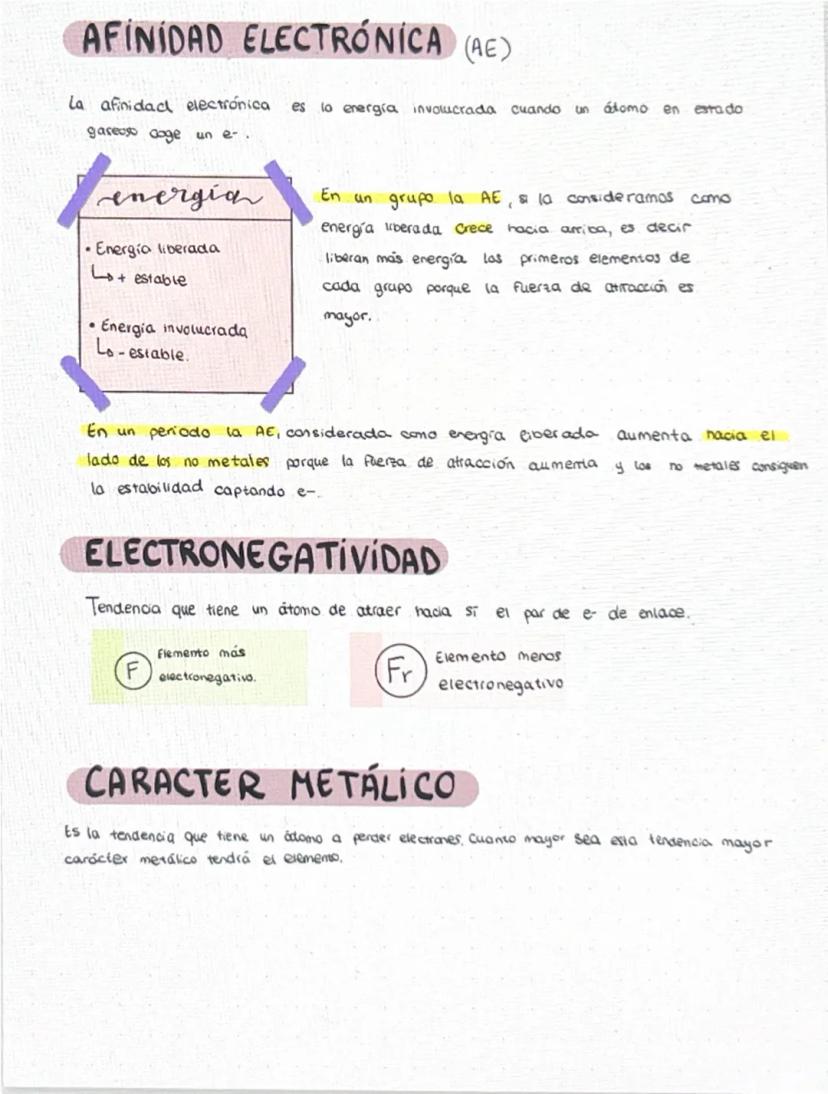 AFINIDAD ELECTRÓNICA (AE)
La afinidad electrónica es la energía involucrada cuando un átomo en estado
gaseoso coge un e-.
energía
• Energía liberada
↳ + estable
• Energía involucrada
↳ - estable.
En un grupo la AE, si la consideramos como
energía liberada crece hacia arriba, es decir
liberan más energía los primeros elementos de
cada grupo porque la fuerza de atracción es
mayor.
En un periodo la AE, considerada como energía liberada aumenta hacia el
lado de los no metales porque la fuerza de atracción aumenta y los no metales consiguen
la estabilidad captando e-.
ELECTRONEGATIVIDAD
Tendencia que tiene un átomo de atraer hacia sí el par de e- de enlace.
F Elemento más
electronegativo.
Fr Elemento menos
electronegativo
CARACTER METÁLICO
Es la tendencia que tiene un átomo a perder electrones. Cuanto mayor sea esta tendencia mayor
carácter metálico tendrá el elemento.